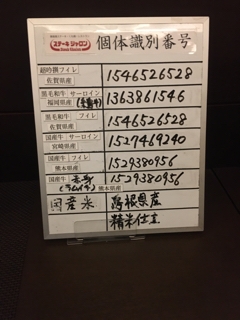 ステーキジャクソン
個体識別番号
超吟撰フィレ
佐賀県産
1546526528
黒毛和牛 サーロイン
福岡県産
1363861546
黒毛和牛 フィレ
佐賀県産
1546526528
国産牛 サーロイン
宮崎県産
1527469240
国産牛 フィレ
熊本県産
1529380956
国産牛
熊本県産
1529380956
国産米 島根県産
精米仕立